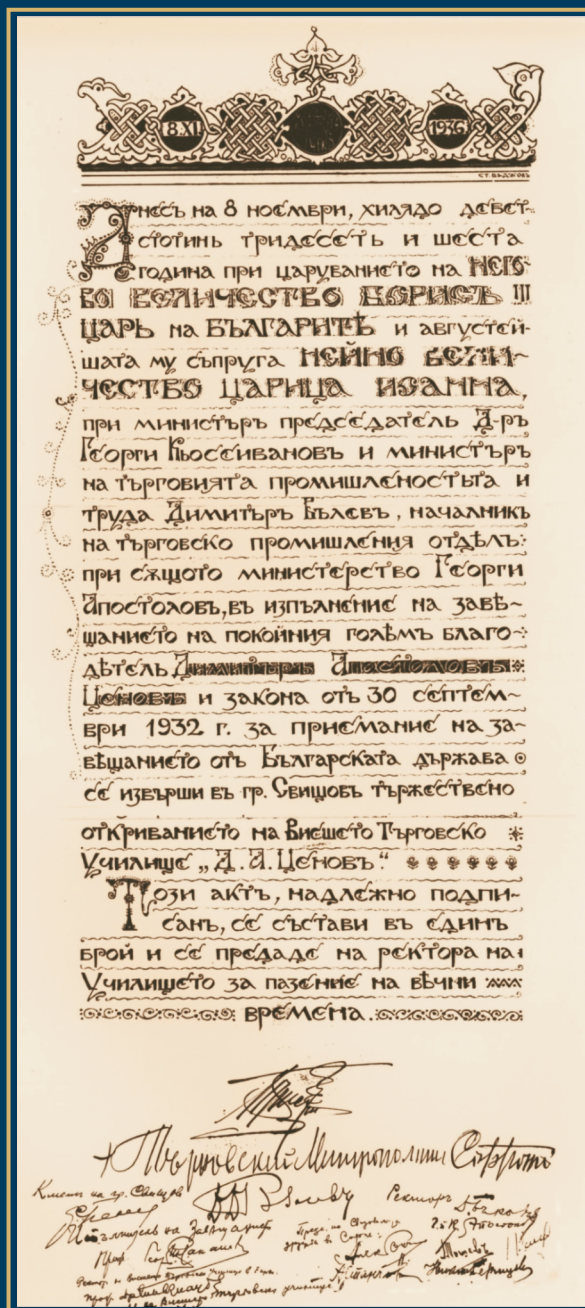 8.XI.
1936
СТ. БАДЖОВЪ
Днесъ на 8 ноемврий, хилядо девет-
стотинь тридесеть и шеста
година при царуванието на НЕГО-
ВО ВЕЛИЧЕСТВО БОРИСЪ III
ЦАРЬ на БЪЛГАРИТѢ и августей-
шата му съпруга НЕЙНО ВЕЛИ-
ЧЕСТВО ЦАРИЦА ИОАННА,
при министъръ председатель Д-ръ
Георги Кьосеивановъ и министъръ
на търговията промишлеността и
труда Димитъръ Вълевъ, началникъ
на търговско промишления отдѣлъ
при сѫщото министерство Георги
Апостоловъ, въ изпълнение на завѣ-
щанието на покойния голѣмъ благо-
дѣтель Димитъръ Апостоловъ
Ценовъ и закона отъ 30 септем-
ври 1932 г. за приемание на за-
вѣщанието отъ Българската държава
се извърши въ гр. Свищовъ тържествено
откриванието на Висшето Търговско
Училище „Д. А. Ценовъ."
Този актъ, надлежно подпи-
санъ, се състави въ единъ
брой и се предаде на ректора на
Училището за пазение на вѣчни
времена.
+ Търновский Митрополитъ Софроний
Кметъ на гр. Свищовъ
Ректоръ